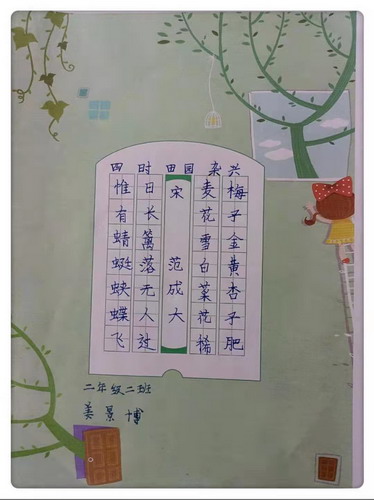 四时田园杂兴
梅子金黄杏子肥
麦花雪白菜花稀
宋 范成大
日长篱落无人过
惟有蜻蜓蛱蝶飞
二年级二班
姜景博